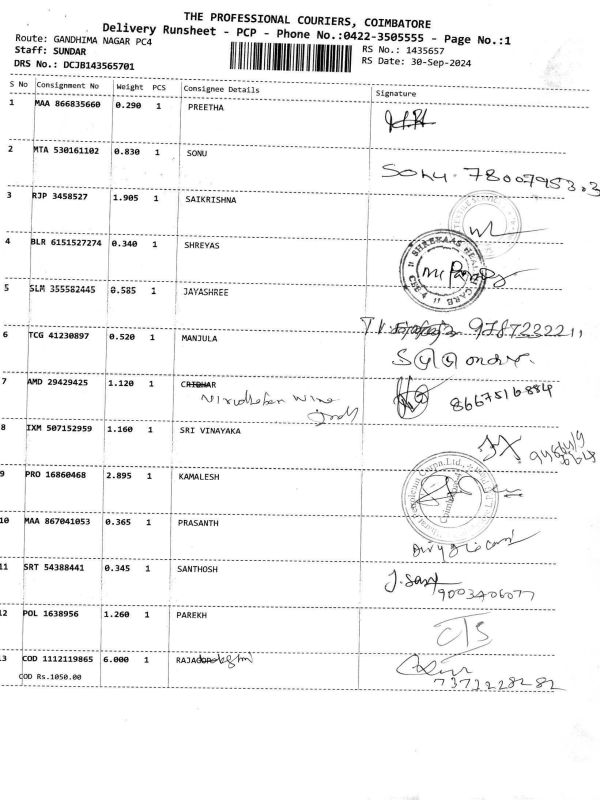 THE PROFESSIONAL COURIERS, COIMBATORE
Delivery Runsheet - PCP - Phone No.:0422-3505555 - Page No.:1
Route: GANDHIMA NAGAR PC4
Staff: SUNDAR
DRS No.: DCJB143565701
RS No.: 1435657
RS Date: 30-Sep-2024
S No Consignment No Weight PCS Consignee Details Signature
1 MAA 866835660 0.290 1 PREETHA
2 MTA 530161102 0.830 1 SONU
Sonu. 7800795303
3 RJP 3458527 1.905 1 SAIKRISHNA
4 BLR 6151527274 0.340 1 SHREYAS
SHREKAAS HEALTH CARE
CBE 4
5 SLM 355582445 0.585 1 JAYASHREE
9787222211
6 TCG 41230897 0.520 1 MANJULA
7 AMD 29429425 1.120 1
8667516884
8 IXM 507152959 1.160 1 SRI VINAYAKA
9 PRO 16860468 2.895 1 KAMALESH
Bharat Petroleum Corpn.Ltd.,
Coimbatore
10 MAA 867041053 0.365 1 PRASANTH
11 SRT 54388441 0.345 1 SANTHOSH
J. Sant
9003406077
12 POL 1638956 1.260 1 PAREKH
C/S
13 COD 1112119865 6.000 1
COD Rs.1050.00
7373228282